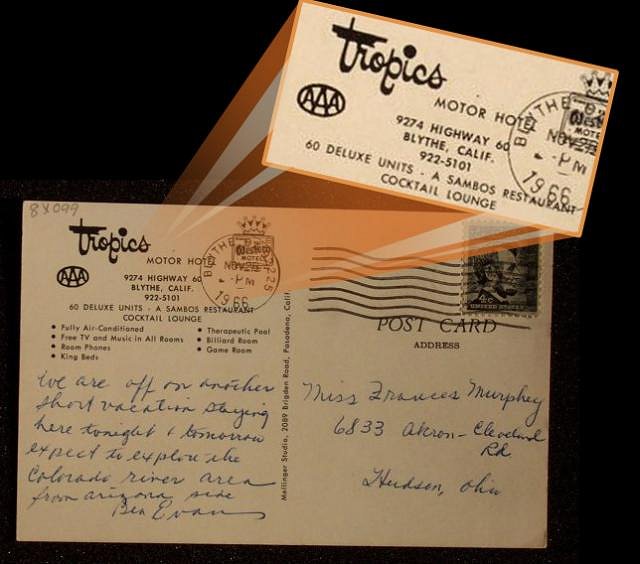 Tropics
MOTOR HOTEL
AAA
9274 HIGHWAY 60
BLYTHE, CALIF.
922-5101
60 DELUXE UNITS - A SAMBOS RESTAURANT
COCKTAIL LOUNGE
BLYTHE
Best
MOTE
NOV 26
PM
1966
8X099
Tropics
MOTOR HOTEL
AAA
9274 HIGHWAY 60
BLYTHE, CALIF.
922-5101
60 DELUXE UNITS - A SAMBOS RESTAURANT
COCKTAIL LOUNGE
• Fully Air-Conditioned
• Free TV and Music in All Rooms
• Room Phones
• King Beds
• Therapeutic Pool
• Billiard Room
• Game Room
BLYTHE
92225
MOTEL
NOV 26
PM
1966
4c
UNITED STATES
POST CARD
ADDRESS
Mellinger Studio, 2089 Brigden Road, Pasadena, Calif.
We are off on another
short vacation staying
here tonight & tomorrow
expect to explore the
Colorado river area
from arizona side
Ben Evans
Miss Frances Murphey
6833 Akron-Cleveland
Rd
Hudson, Ohio